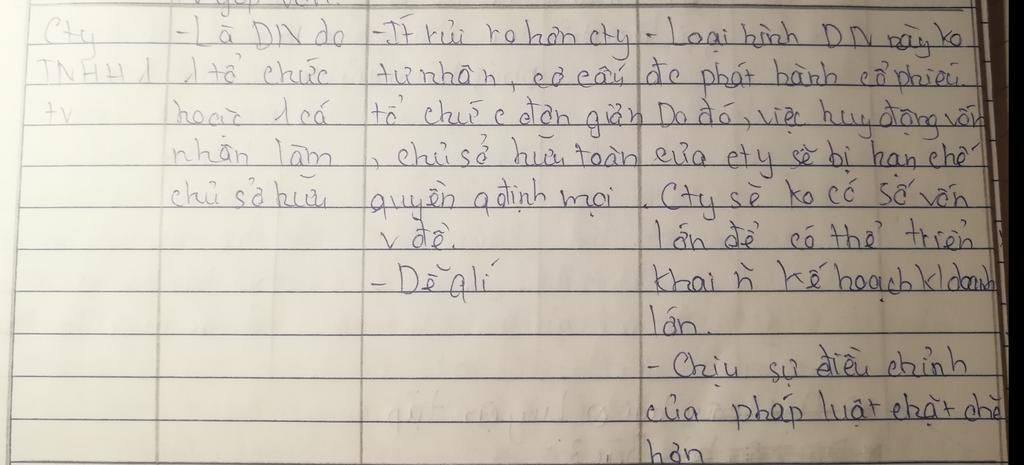 Cty
TNHH 1
tv
- Là DN do
1 tổ chức
hoặc 1 cá
nhân làm
chủ sở hữu
- Ít rủi ro hơn cty
tư nhân, cơ cấu
tổ chức đơn giản
, chủ sở hữu toàn
quyền qđịnh mọi
vđề.
- Dễ qlí
- Loại hình DN này ko
đc phát hành cổ phiếu.
Do đó, việc huy động vốn
của cty sẽ bị hạn chế
. Cty sẽ ko có số vốn
lớn để có thể triển
khai ~ kế hoạch kdoanh
lớn.
- Chịu sự điều chỉnh
của pháp luật chặt chẽ
hơn